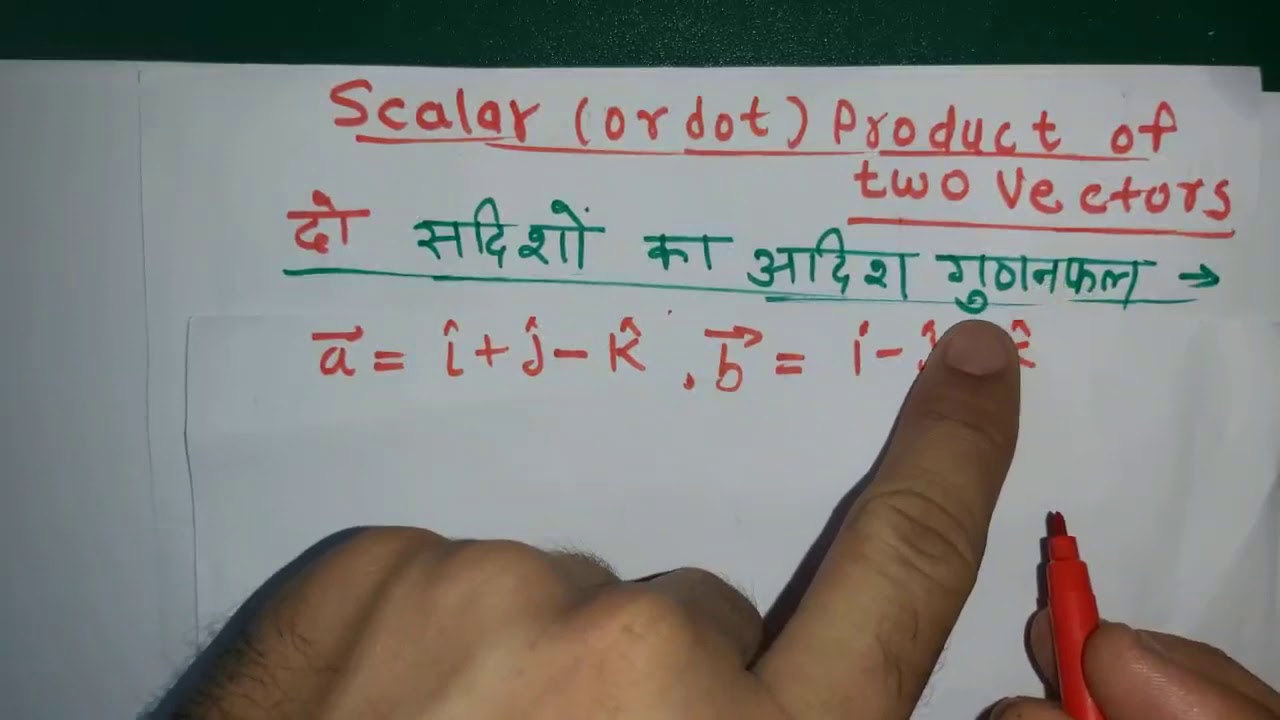 Scalar (or dot) Product of
two Vectors
दो सदिशों का आदिश गुणनफल →
a⃗ = î + ĵ - k̂ , b⃗ = î -